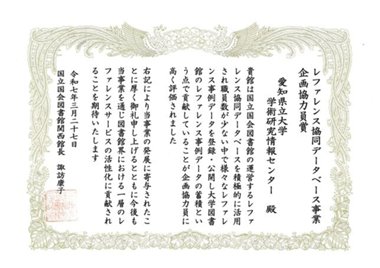 レファレンス協同データベース事業
企画協力員賞
愛知県立大学
学術研究情報センター 殿
貴館は国立国会図書館の運営するレファ
レンス協同データベースを積極的に活用
され職員数が少ない中で様々なレファレ
ンス事例データを登録・公開し大学図書
館のレファレンス事例データの蓄積とい
う点で貢献していることが企画協力員に
高く評価されました
右記により当事業の発展に寄与されたこ
とに厚く御礼申し上げるとともに今後も
当事業を通じ図書館界における一層のレ
ファレンスサービスの活性化に貢献され
ることを期待いたします
令和七年三月二十七日
国立国会図書館関西館長 諏訪康子